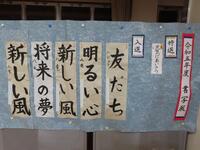 令和五年度 書写展
特選
入選
友だち
明るい心
新しい風
将来の夢
新しい風